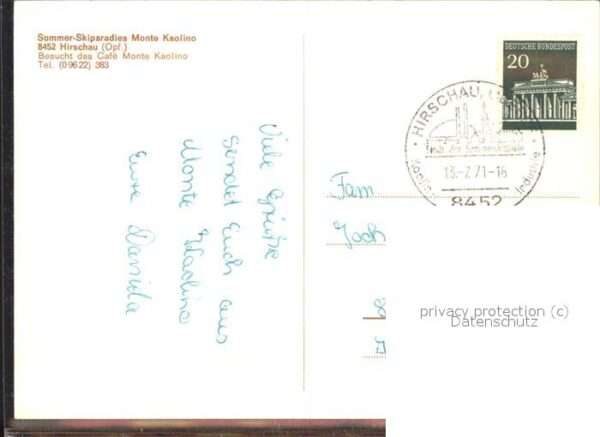 Sommer-Skiparadies Monte Kaolino
8452 Hirschau (Opf.)
Besucht das Café Monte Kaolino
Tel. (09622) 383
DEUTSCHE BUNDESPOST
20
HIRSCHAU,
13.-7.71-18
Industrie
8452
Viele Grüße
sendet Euch aus
Monte Kaolino
Eure Daniela
Fam.
Joch
privacy protection (c)
Datenschutz